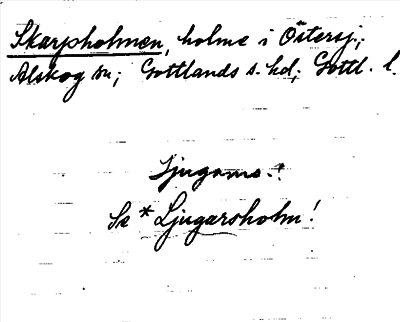 Skarpholmen, holme i Östersj.;
Alskog sn; Gottlands s. hd; Gottl. l.
Ljugarns.
Se *Ljugarsholm!